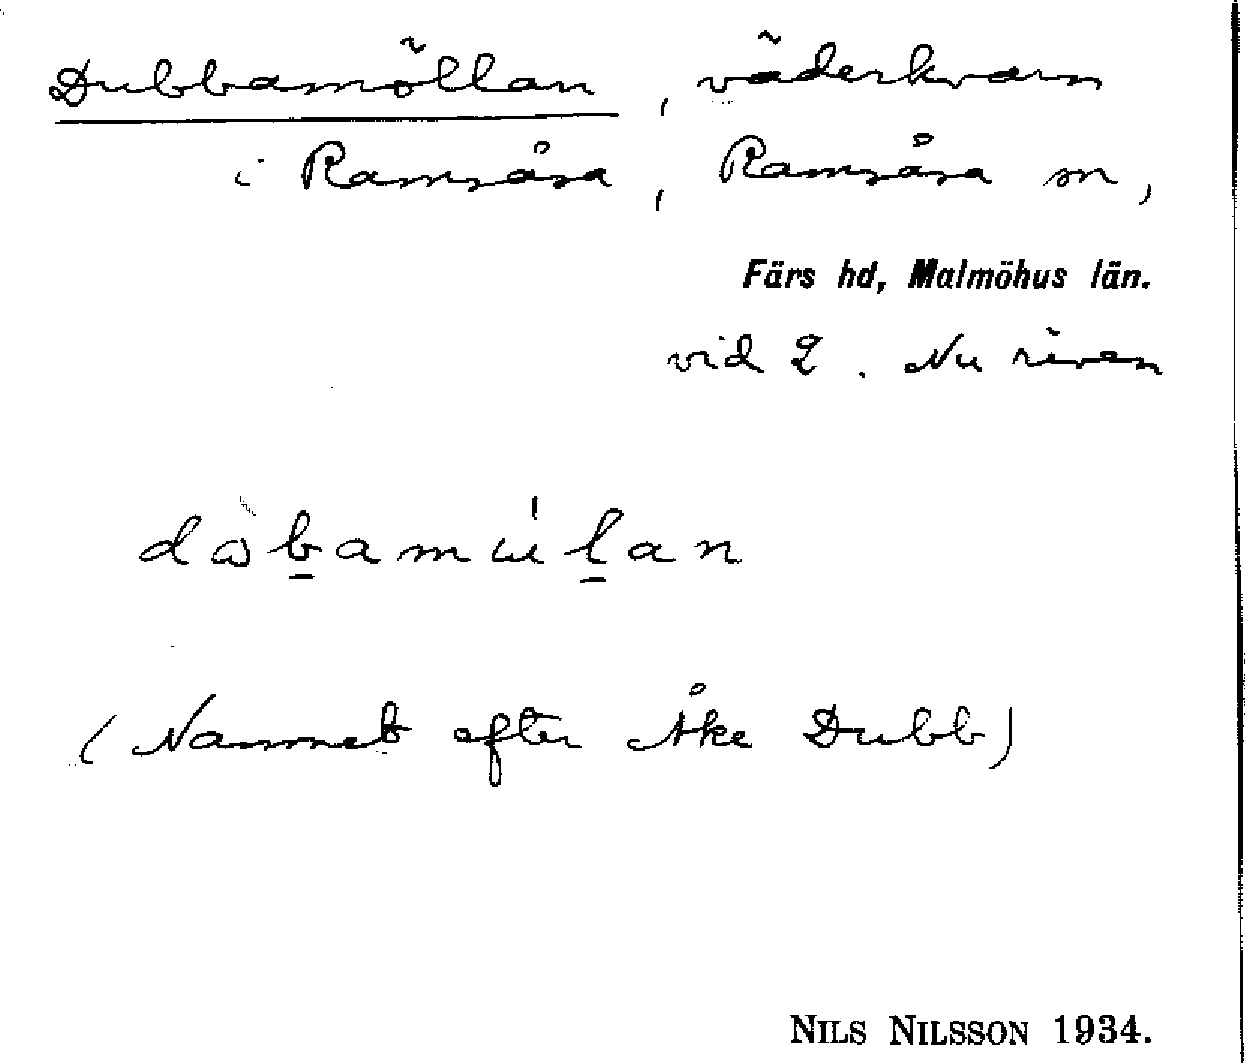 Dubbamöllan, väderkvarn
i Ramsåsa, Ramsåsa sn,
Färs hd, Malmöhus län.
vid 2. Nu riven
(Namnet efter Åke Dubb)
NILS NILSSON 1934.